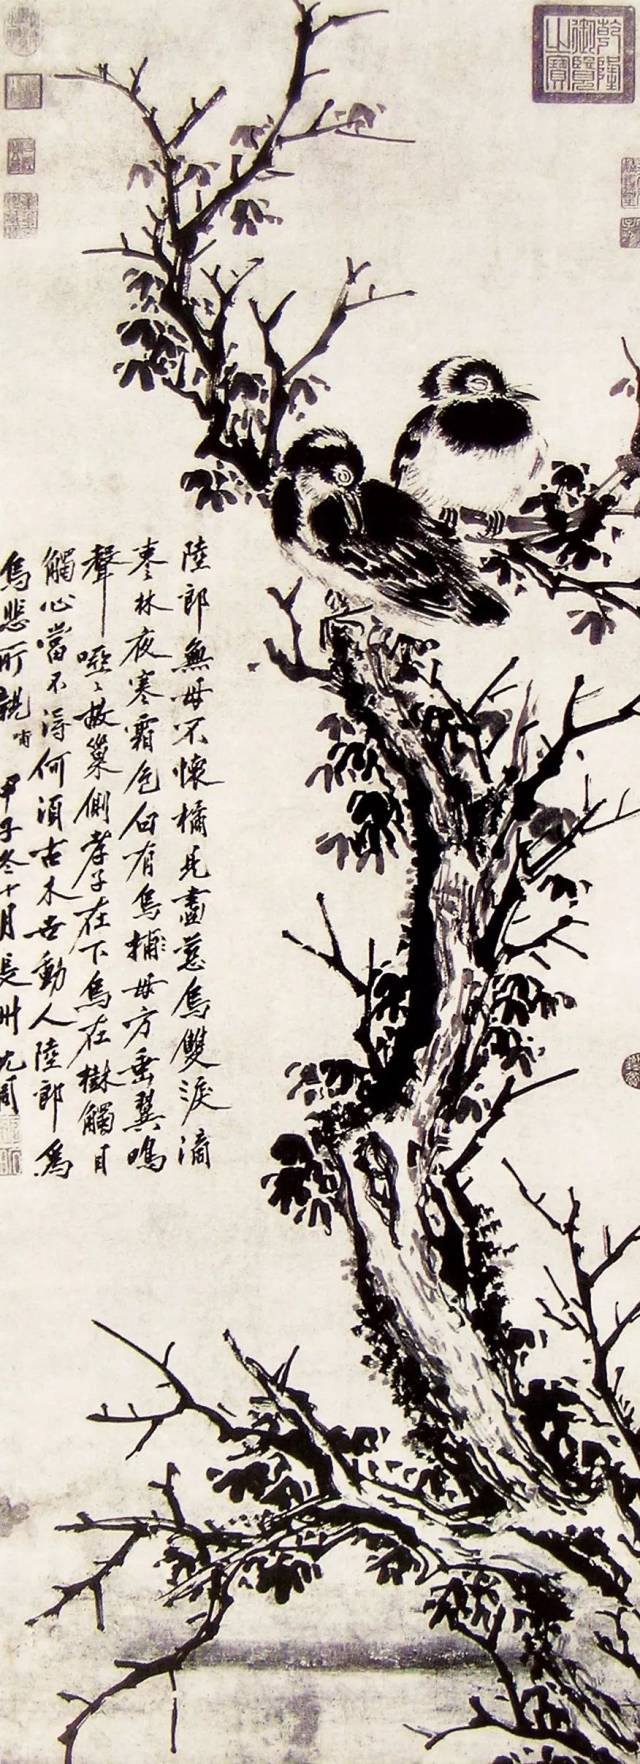 乾隆御覽之寶
陸郎無母不懷橘見畫慈烏雙淚滴
棗林夜寒霜色白有烏母方垂翼鳴
聲啞啞故巢側孝子在下烏在樹觸目
觸心當不得何須古木動人陸郎為
烏悲所親甲子冬十月長州沈周